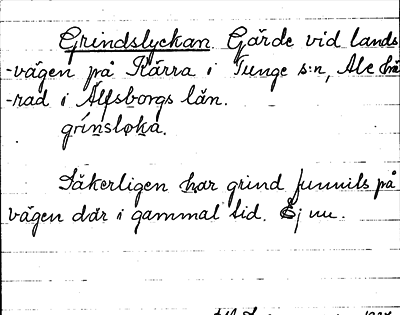 Grindslyckan. Gärde vid lands
-vägen på Kärra i Tunge s:n, Ale hä
-rad i Älfsborgs län.
grínslọka.
Säkerligen har grind funnits på
vägen där i gammal tid. Ej nu.